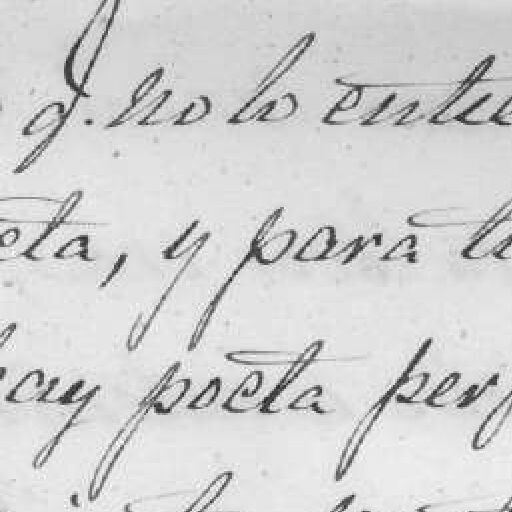 q. no lo entie
eta, y para ti
hay poeta perf